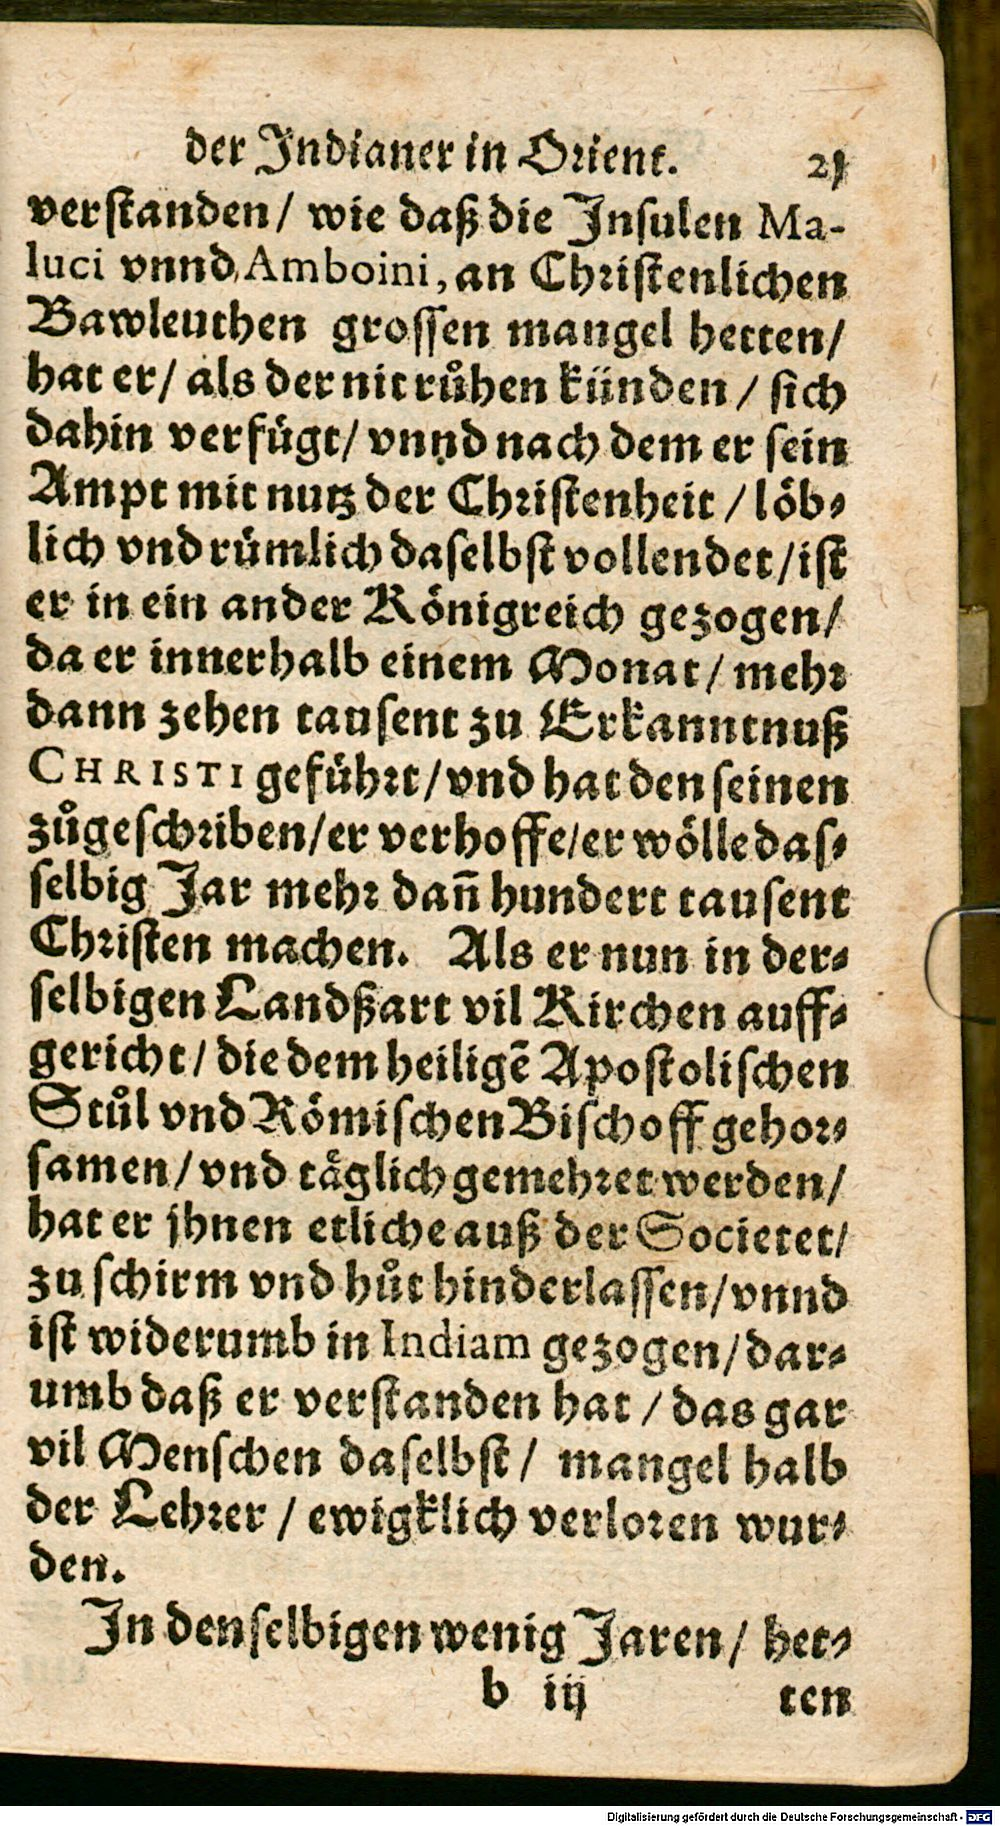 der Indianer in Orient. 21
verstanden/ wie daß die Insulen Ma-
luci vnnd Amboini, an Christenlichen
Bawleuthen grossen mangel hetten/
hat er/ als der nit růhen künden / sich
dahin verfügt/ vnnd nach dem er sein
Ampt mit nutz der Christenheit / löb-
lich vnd rümlich daselbst vollendet/ist
er in ein ander Königreich gezogen/
da er innerhalb einem Monat/ mehr
dann zehen tausent zu Erkanntnuß
CHRISTI geführt/vnd hat den seinen
zůgeschriben/er verhoffe/er wölle das-
selbig Jar mehr dañ hundert tausent
Christen machen. Als er nun in der-
selbigen Landßart vil Kirchen auff-
gericht/ die dem heiligẽ Apostolischen
Stůl vnd Römischen Bischoff gehor-
samen/vnd täglich gemehret werden/
hat er jhnen etliche auß der Societet/
zu schirm vnd hůt hinderlassen/vnnd
ist widerumb in Indiam gezogen/dar-
umb daß er verstanden hat / das gar
vil Menschen daselbst/ mangel halb
der Lehrer / ewigklich verloren wur-
den.
In denselbigen wenig Jaren/ het-
b iij ten
Digitalisierung gefördert durch die Deutsche Forschungsgemeinschaft - DFG